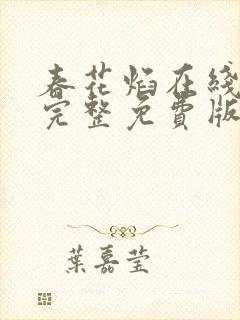 春花焰在线
完整免費版
葉嘉莹